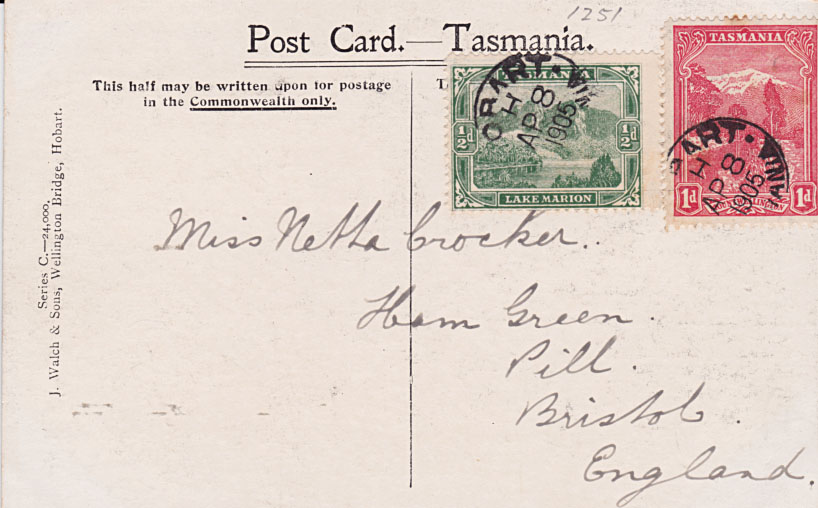 1251
Post Card.—Tasmania.
This half may be written upon for postage
in the Commonwealth only.
TASMANIA
½d ½d
LAKE MARION
HOBART
H
AP 8
1905
TASMANIA
1d 1d
HOBART
H
AP 8
1905
Series C.—24,000.
J. Walch & Sons, Wellington Bridge, Hobart.
Miss Netta Crocker.
Ham Green.
Pill.
Bristol.
England.